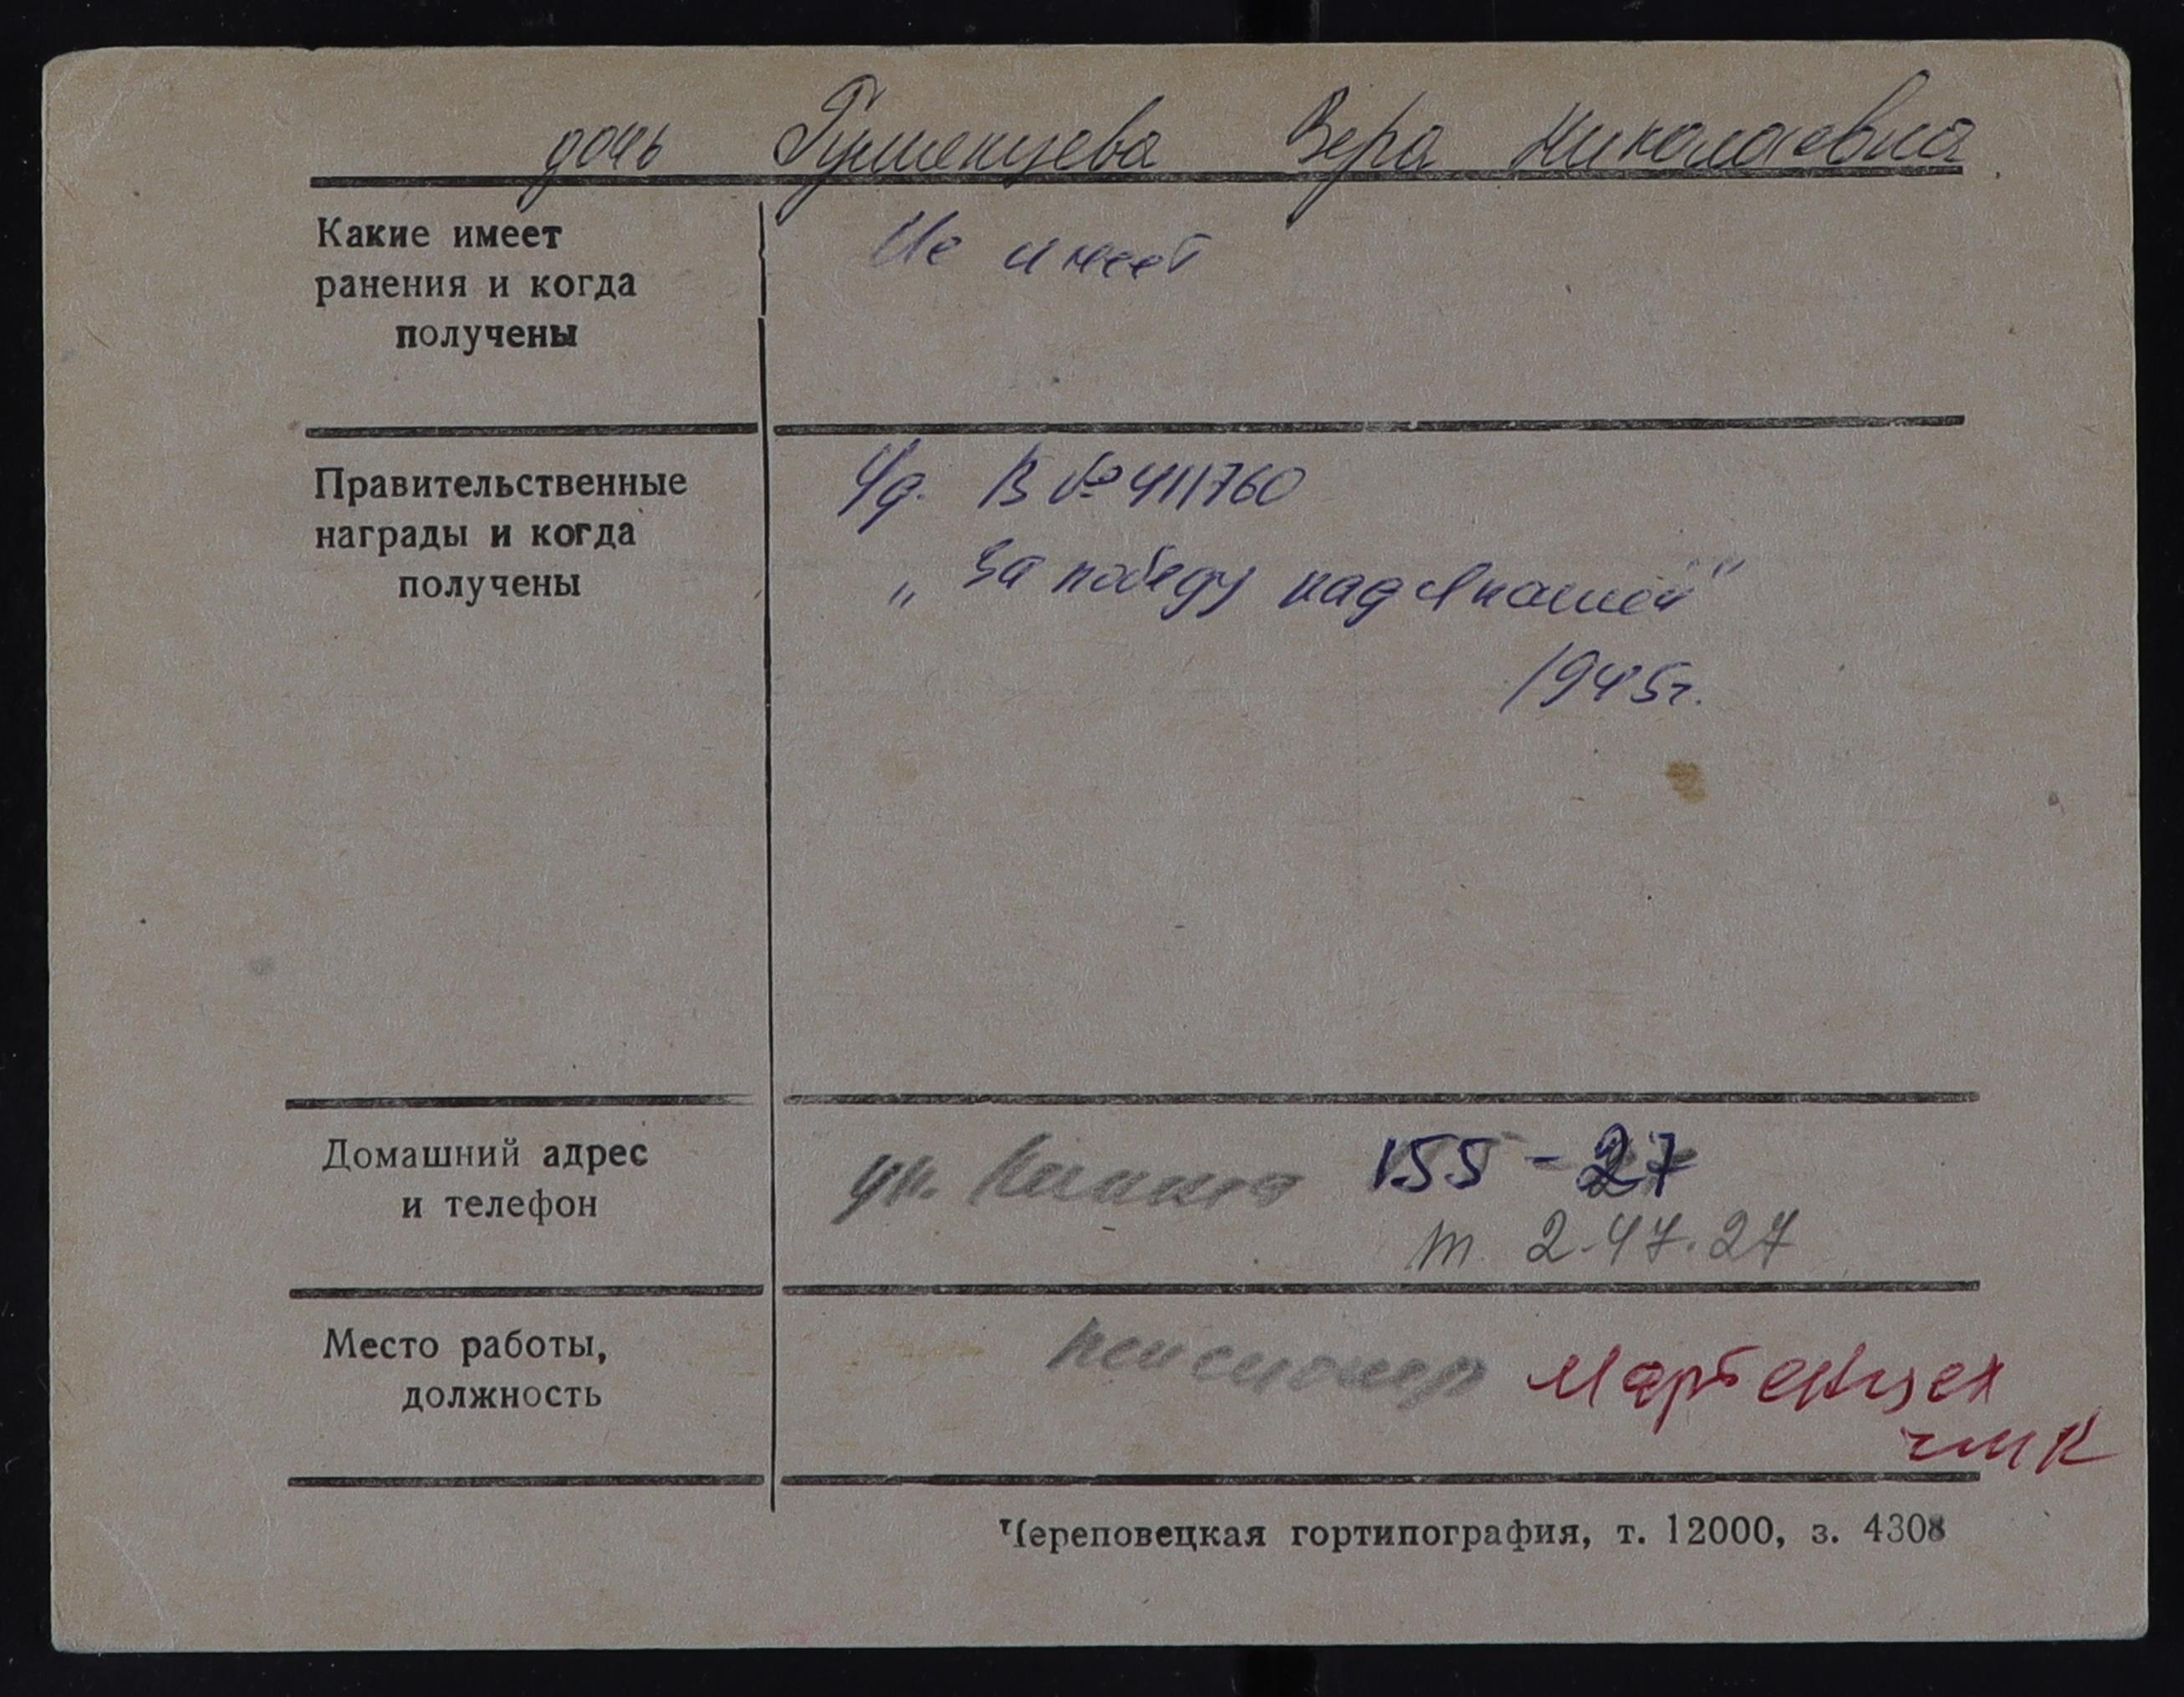 дочь Гуменцева Вера Николаевна
Какие имеет
ранения и когда
получены
Не имеет
Правительственные
награды и когда
получены
Уд. В № 411760
„За победу над Японией"
1945г.
Домашний адрес
и телефон
ул. 155-27
т. 2-47.27
Место работы,
должность
пенсионер Мартенцех
ЧМК
Череповецкая гортипография, т. 12000, з. 4308